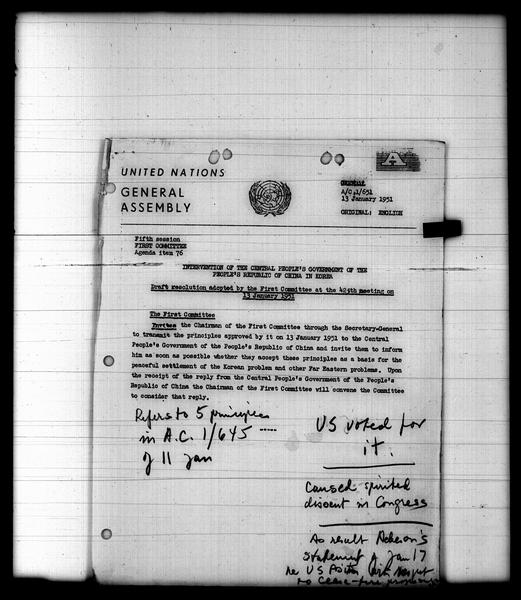 UNITED NATIONS
GENERAL
ASSEMBLY
A
GENERAL
A/C.1/651
13 January 1951
ORIGINAL: ENGLISH
Fifth session
FIRST COMMITTEE
Agenda item 76
INTERVENTION OF THE CENTRAL PEOPLE'S GOVERNMENT OF THE
PEOPLE'S REPUBLIC OF CHINA IN KOREA
Draft resolution adopted by the First Committee at the 425th meeting on
13 January 1951
The First Committee
Invites the Chairman of the First Committee through the Secretary-General
to transmit the principles approved by it on 13 January 1951 to the Central
People's Government of the People's Republic of China and invite them to inform
him as soon as possible whether they accept these principles as a basis for the
peaceful settlement of the Korean problem and other Far Eastern problems. Upon
the receipt of the reply from the Central People's Government of the People's
Republic of China the Chairman of the First Committee will convene the Committee
to consider that reply.
Refers to 5 principles
in A.C. 1/645
of 11 Jan
US voted for
it.
Caused spirited
dissent in Congress
As result Acheson's
statement of Jan 17
re US Position with respect
to Cease-fire